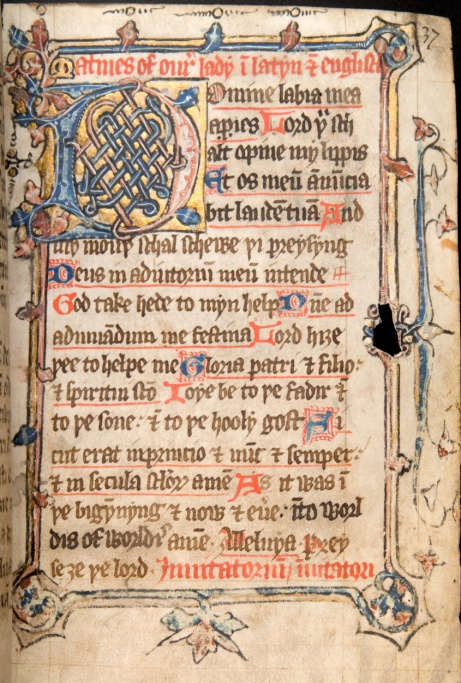 37
Matines of oure lady ī latyn ⁊ englisch
Domine labia mea
apies Lord þ schalt
alt opine my lippis
Et os meū ānūcia
bit laudē tuā And
my mouþ schal schewe þi preysyng
Deus in adiutoriū meū intende
God take hede to myn help Dn̄e ad
adiuuādum me festina Lord hize
þee to helpe me Gloria patri ⁊ filio:
⁊ spiritui sc̄o Ioye be to þe fadir ⁊
to þe sone: ⁊ to þe hooly gost Si
cut erat in principio ⁊ nūc ⁊ semper:
⁊ in secula sclōꝝ amē As it was ī
þe bigȳnyng ⁊ now ⁊ eue: īto worl
dis of worldis ame Alleluya Prey
se ze þe lord Inuitatoriū inuitatori